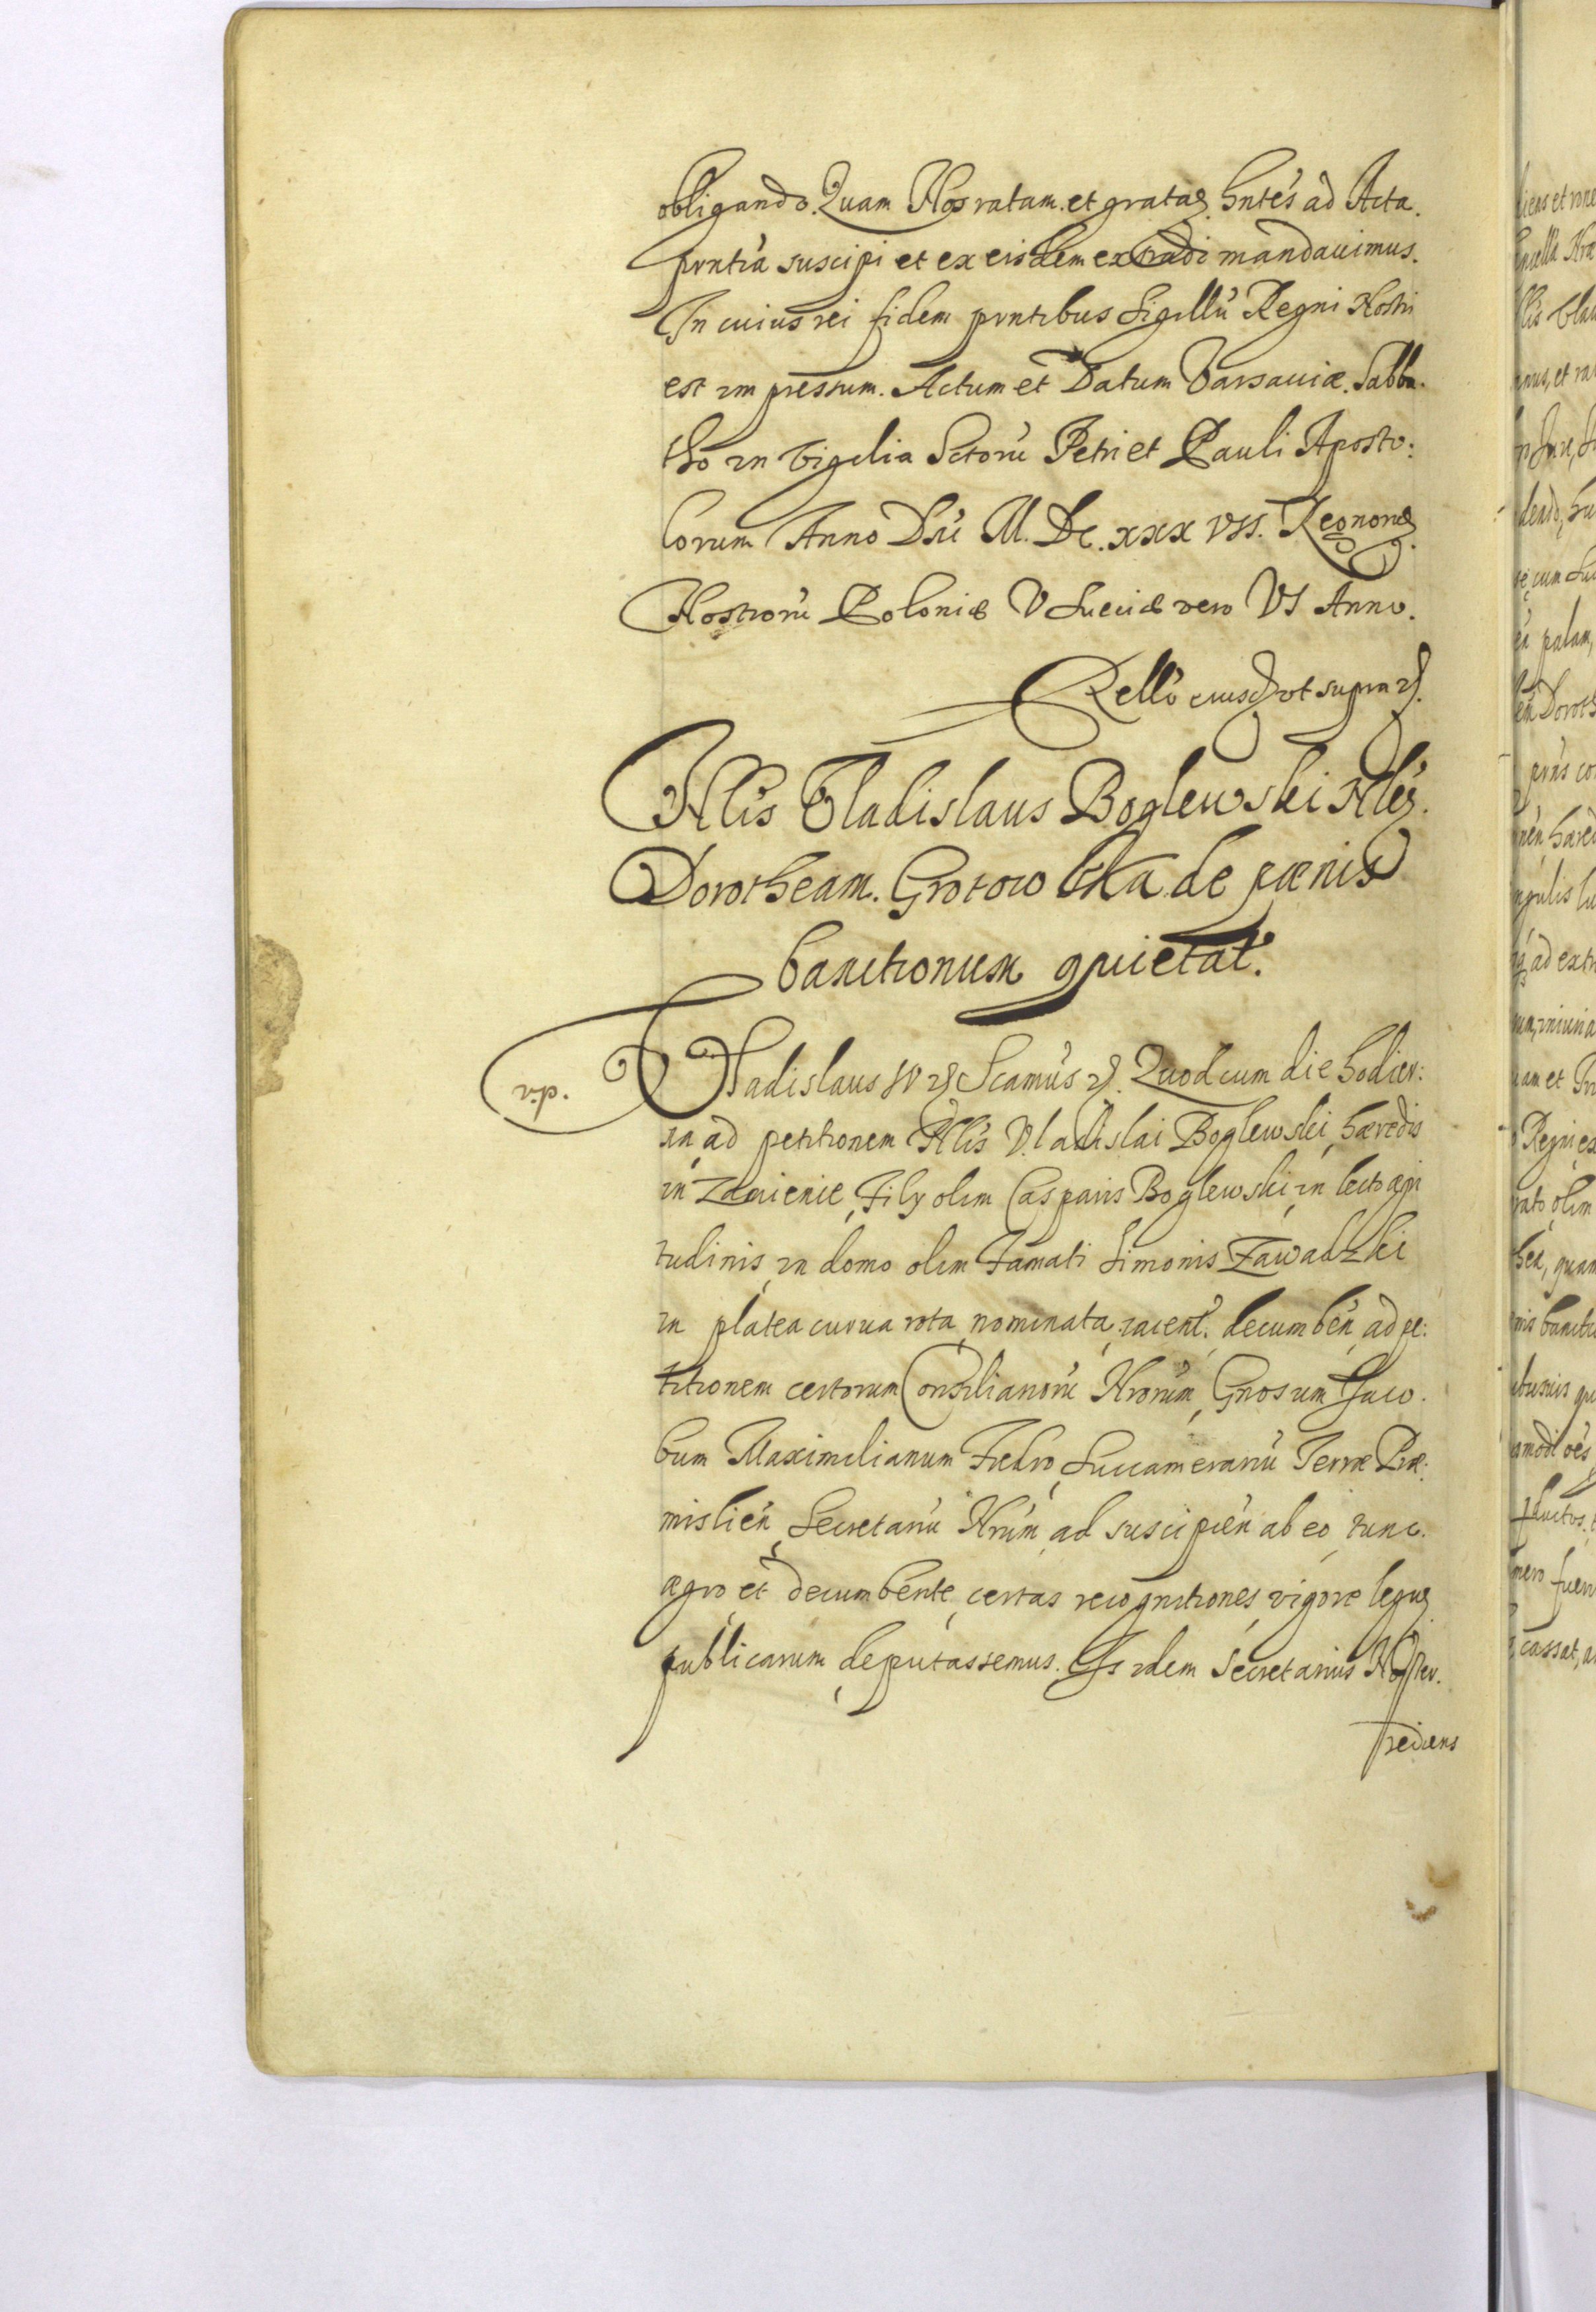 obligando. Quam Nos ratam et gratam hntes ad Acta
prntia suscipi et ex eisdem extradi mandavimus.
In cuius rei fidem prntibus Sigillu Regni Nostri
est impressum. Actum et Datum Varsaviæ. Sabba-
tho in Vigilia Sctoru Petri et Pauli Aposto:
lorum Anno Dni M. DC. XXXVII. Regnorum
Nostroru Poloniæ V Sueciæ vero VI Anno.
Rello eiusd ut supra
Nlis Vladislaus Boglewski Nlem
Dorotheam Grotowska de pænis
banitionum quietat.
Vladislaus IV Scamus Quod cum die hodier:
na ad petitionem Nlis Vladislai Boglewski, hæredis
in Zawienie, Fily olim Casparis Boglewski, in lecto ægri
tudinis, in domo olim Famati Simonis Zawadzki
in platea curva rota nominata iacent. decumben ad pe:
titionem certorum Consilianoru Nrorum, Gnosum Jaco.
bum Maximilianum Fredro, Succameraniu Terræ Præ:
mislien, Secretariu Nrum ad suscipien ab eo tunc
ægro et decumbente certas recognitiones vigore legum
publicarum deputassemus. Is idem Secretarius Noster.
rediens